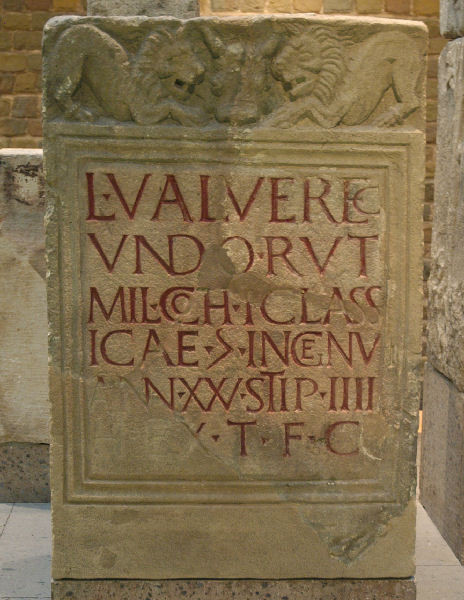 L·VALVEREC
VNDO·RVT
MIL·COH·I·CLASS
ICAE·S·INGENV
ANXXV·STIP·IIII
·T·F·C